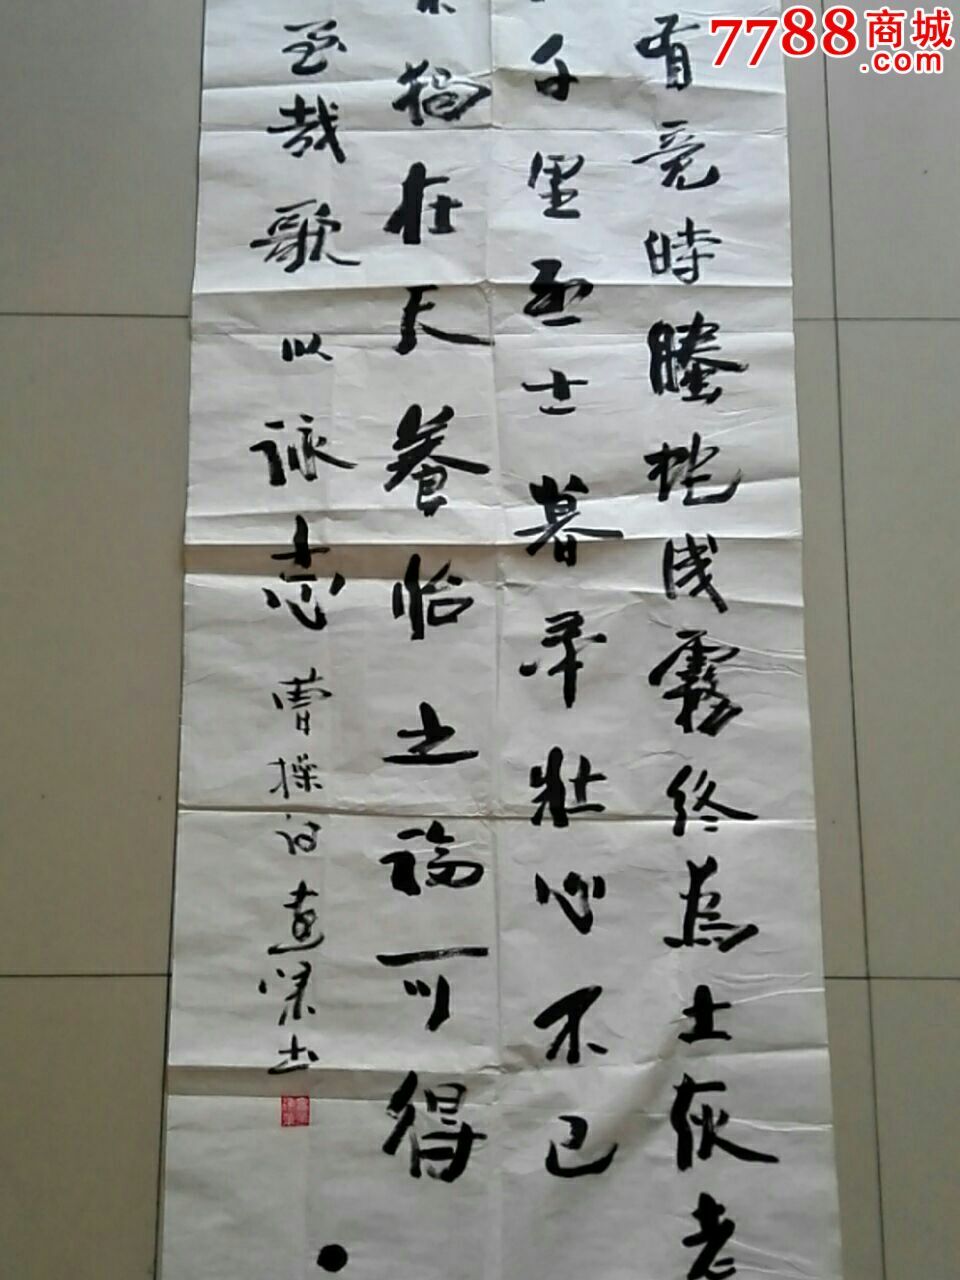 7788商城
.com
有竟時螣蛇成霧終為土灰老
千里烈士暮年壯心不已
独在天養怡之福可得
至哉歌以詠志 曹操诗